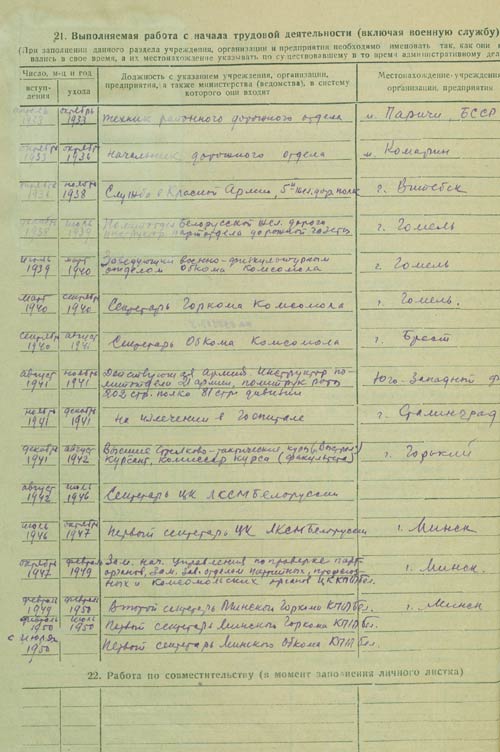 21. Выполняемая работа с начала трудовой деятельности (включая военную службу)
(При заполнении данного раздела учреждения, организации и предприятия необходимо именовать так, как они
вались в свое время, а их местонахождение указывать по существовавшему в то время административному дел
Число, м-ц и год
вступления
ухода
Должность с указанием учреждения, организации,
предприятия, а также министерства (ведомства), в систему
которого они входят
Местонахождение учрежден
организации, предприятия
апрель 1933 октябрь 1933 техник районного дорожного отдела м. Паричи, БССР
октябрь 1933 октябрь 1936 начальник дорожного отдела м. Комарин
октябрь 1936 ноябрь 1938 Служба в Красной Армии, 5й жел. дор. полк г. Витебск
1938 июль 1939 Политотдел Белорусской жел. дороги
инструктор дорожной газеты г. Гомель
июль 1939 март 1940 Заведующий военно-физкультурным
отделом Обкома Комсомола г. Гомель
март 1940 сентябрь 1940 Секретарь Горкома Комсомола г. Гомель.
сентябрь 1940 август 1941 Секретарь Обкома Комсомола г. Брест
август 1941 ноябрь 1941 Действующая армия. Инструктор по-
литотдела 21 армии, политрук роты
202 стр. полка 81 стр. дивизии Юго-Западный ф
ноябрь 1941 декабрь 1941 на излечении в госпитале г. Сталинград
декабрь 1941 август 1942 Высшие стрелково-тактические курсы
курсант, комиссар курса (факультета) г. Горький
август 1942 июль 1946 Секретарь ЦК ЛКСМ Белоруссии
июль 1946 октябрь 1947 Первый секретарь ЦК ЛКСМ Белоруссии г. Минск
октябрь 1947 февраль 1949 Зам. нач. управления по проверке парт-
органов, зам. зав. отделом партийных, профсоюз-
ных и комсомольских органов ЦК КП(б) Бел. г. Минск.
февраль 1949 февраль 1950 Второй секретарь Минского Горкома КП(б) Бел. г. Минск
февраль 1950 июль 1950 Первый секретарь Минского Горкома КП(б) Бел.
с июля 1950 Первый секретарь Минского Обкома КП(б) Бел.
22. Работа по совместительству (в момент заполнения личного листка)